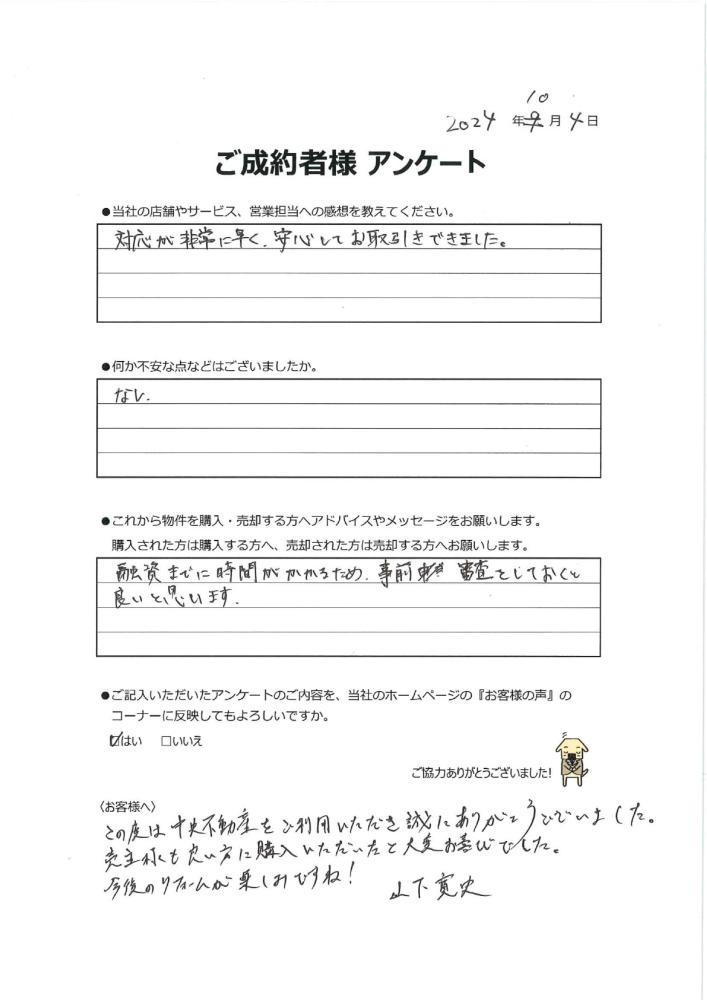 10
2024 年 9 月 4 日
ご成約者様 アンケート
●当社の店舗やサービス、営業担当への感想を教えてください。
対応が非常に早く、安心してお取引きできました。
●何か不安な点などはございましたか。
なし.
●これから物件を購入・売却する方へアドバイスやメッセージをお願いします。
購入された方は購入する方へ、売却された方は売却する方へお願いします。
融資までに時間がかかるため、事前 審査をしておくと
良いと思います.
●ご記入いただいたアンケートのご内容を、当社のホームページの『お客様の声』の
コーナーに反映してもよろしいですか。
☑はい □いいえ
ご協力ありがとうございました!
〈お客様へ〉
この度は中央不動産をご利用いただき誠にありがとうございました。
売主様も良い方に購入いただいたと大変お喜びでした。
今後のリフォームが楽しみですね!
山下寛史